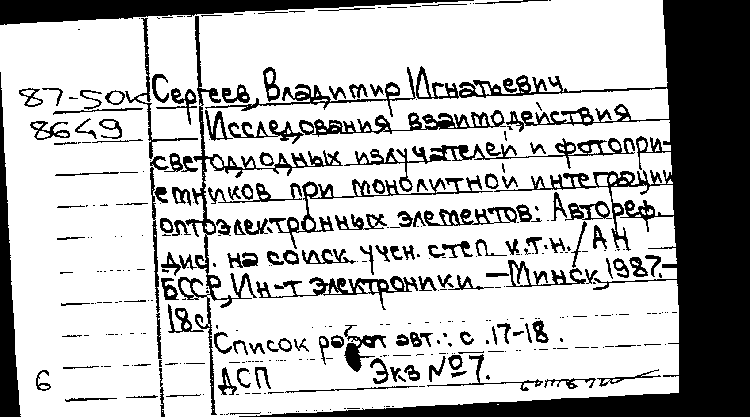 87-50к Сергеев, Владимир Игнатьевич.
8649 Исследования взаимодействия
светодиодных излучателей и фотопри-
емников при монолитной интеграции
оптоэлектронных элементов: Автореф.
дис. на соиск. учен. степ. к.т.н. / АН
БССР, Ин-т электроники. — Минск, 1987. —
18с.
Список работ авт.: с. 17-18.
6 ДСП Экз №7.